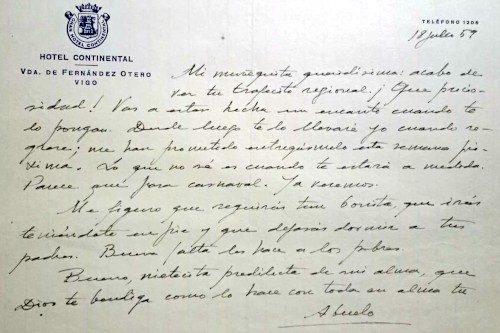 GRAN HOTEL CONTINENTAL
TELÉFONO 1206
HOTEL CONTINENTAL
VDA. DE FERNÁNDEZ OTERO
VIGO
18 julio 59
Mi muñequita queridísima: acabo de
ver tu trajecito regional. ¡Que precio-
sidad! Vas a estar hecha un encanto cuando te
lo pongan. Desde luego te lo llevaré yo cuando re-
grese; me han prometido entregármelo esta semana pró-
xima. Lo que no sé es cuando te estará a medida.
Parece que para carnaval. Ya veremos.
Me figuro que seguirás tan bonita, que irás
teniéndote en pie y que dejarás dormir a tus
padres. Buena falta les hace a los pobres.
Bueno, nietecita predilecta de mi alma, que
Dios te bendiga como lo hace con toda su alma tu
Abuelo